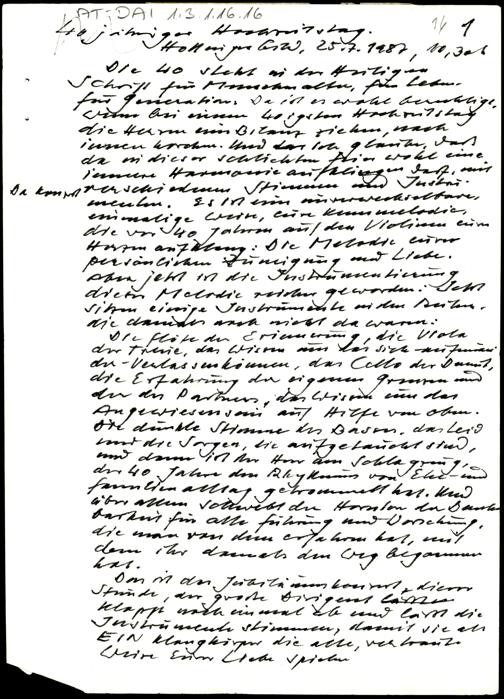 AT-DAI 1.3.1.16.16
14 1
40 jähriger Hochzeitstag.
25.7.1987, 10,30h
Die 40 steht in der Heiligen
Schrift für Menschenalter, für Leben
für Generation. Da ist es wohl berechtigt,
wenn bei einem 40igsten Hochzeitstag
die Herzen eine Bilanz ziehen, nach
innen horchen. Und das ich glaube, daß
da in dieser schlichten Feier wohl eine
innere Harmonie aufklingen darf, mit
Da Konzert verschiedenen Stimmen und Instru-
menten. Es ist eine unverwechselbare
einmalige Weise, eure Kennmelodie,
die vor 40 Jahren auf den Violinen eurer
Herzen aufklang: Die Melodie eurer
persönlichen Zuneigung und Liebe.
Aber jetzt ist die Instrumentierung
dieser Melodie reicher geworden: Jetzt
sitzen einige Instrumente in den Reihen,
die damals noch nicht da waren:
Die Flöte der Erinnerung, die Viola
der Treue, das Wissen um das sich-aufeinan-
der-Verlassenkönnen, das Cello der Demut,
die Erfahrung der eigenen Grenzen und
der des Partners, das Wissen um das
Angewiesensein auf Hilfe von oben.
Die dunkle Stimme des Basses, das Leid
und die Sorgen, die aufgetaucht sind,
und dann ist der Herr am Schlagzeug,
der 40 Jahre den Rhythmus von Ehe- und
Familienalltag getrommelt hat. Und
über allem schwebt der Hornton der Dank-
barkeit für alle Führung und Vorsehung,
die man von dem erfahren hat, mit
dem ihr damals den Weg begonnen
hat.
Das ist das Jubiläumskonzert, dieser
Stunde, der große Dirigent
klopft noch einmal ab und läßt die
Instrumente stimmen, damit sie als
EIN Klangkörper die alte, vertraute
Weise Eurer Liebe spielen